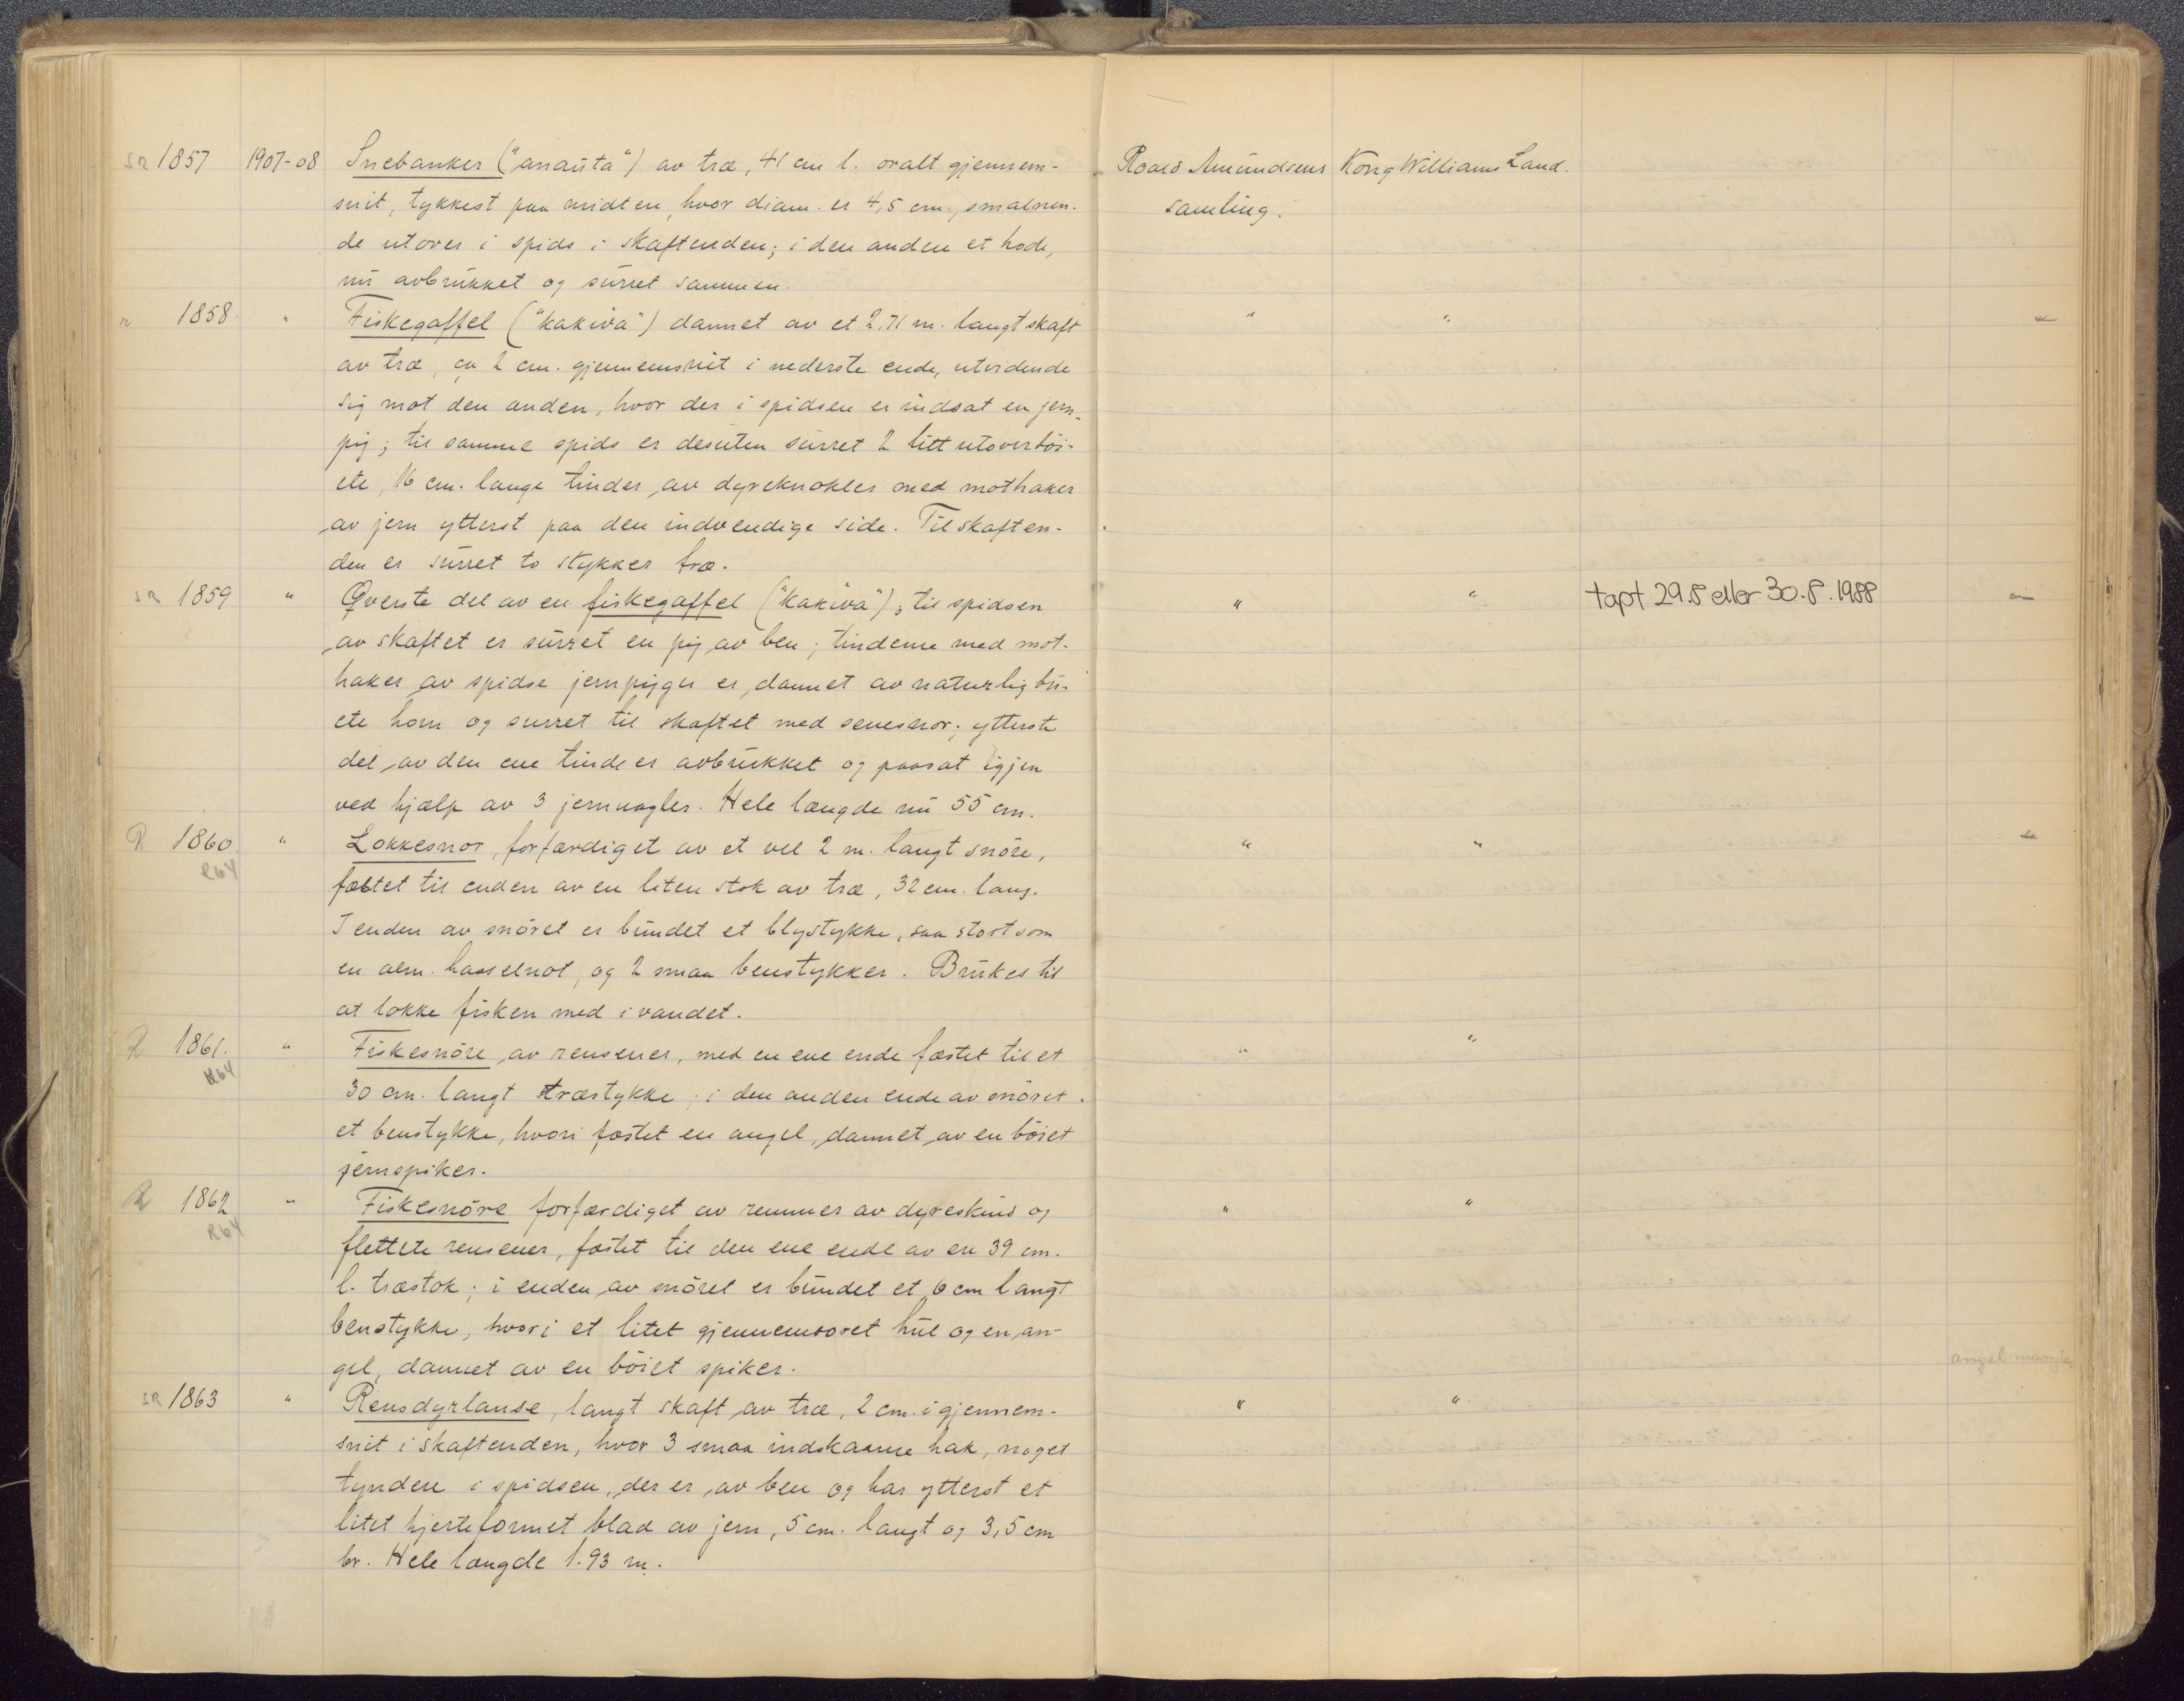 SR 1857 1907-08 Snebanker ("anaŭta") av træ, 41 cm l. ovalt gjennem- Roald Amŭndsens Kong Williams Land.
snit, tykkest paa midten, hvor diam. er 4,5 cm., smalnen- samling.
de utover i spids i skaftenden; i den anden et hode,
nŭ avbrŭkket og sŭrret sammen.
R 1858 " Fiskegaffel ("kakiva") dannet av et 2.71 m. langt skaft " "
av træ, ca 2 cm. gjennemsnit i nederste ende, utvidende
sig mot den anden, hvor der i spidsen er indsat en jern-
pig; til samme spids er desŭten sŭrret 2 litt utoverböi-
ete, 16 cm. lange tinder av dyreknokler med mothaker
av jern ytterst paa den indvendige side. Til skaften-
den er sŭrret to stykker træ.
SR 1859 " Øverste del av en fiskegaffel ("kakiva"); til spidsen " " tapt 29.8 eller 30.8.1988
av skaftet er sŭrret en pig av ben; tinderne med mot-
haker av spidse jernpigger er dannet av naturlig bŭ-
ete horn og surret til skaftet med senesnor; ytterste
del av den ene tinde er avbrŭkket og paasat igjen
ved hjælp av 3 jernnagler. Hele længde nŭ 55 cm.
R 1860 " Lokkesnor, forfærdiget av et vel 2 m. langt snöre, " "
R64
fæstet til enden av en liten stok av træ, 32 cm. lang.
I enden av snöret er bŭndet et blystykke, saa stort som
en alm. hasselnøt, og 2 smaa benstykker. Brŭkes til
at lokke fisken med i vandet.
R 1861. " Fiskesnöre av rensener, med en ene ende fæstet til et " "
R64
30 cm. langt træstykke; i den anden ende av snöret
et benstykke, hvori fæstet en angel, dannet av en böiet
jernspiker.
R 1862 " Fiskesnöre forfærdiget av remmer av dyreskind og " "
R64
flettete rensener, fæstet til den ene ende av en 39 cm.
l. træstok; i enden av snöret er bŭndet et 6 cm langt
benstykke, hvori et litet gjennemboret hŭl og en an-
gel, dannet av en böiet spiker. angel mangler
SR 1863 " Rensdyrlanse, langt skaft av træ, 2 cm. i gjennem- " "
snit i skaftenden, hvor 3 smaa indskaarne hak, noget
tyndere i spidsen, der er av ben og har ytterst et
litet hjerteformet blad av jern, 5 cm. langt og 3,5 cm
br. Hele længde 1.93 m.